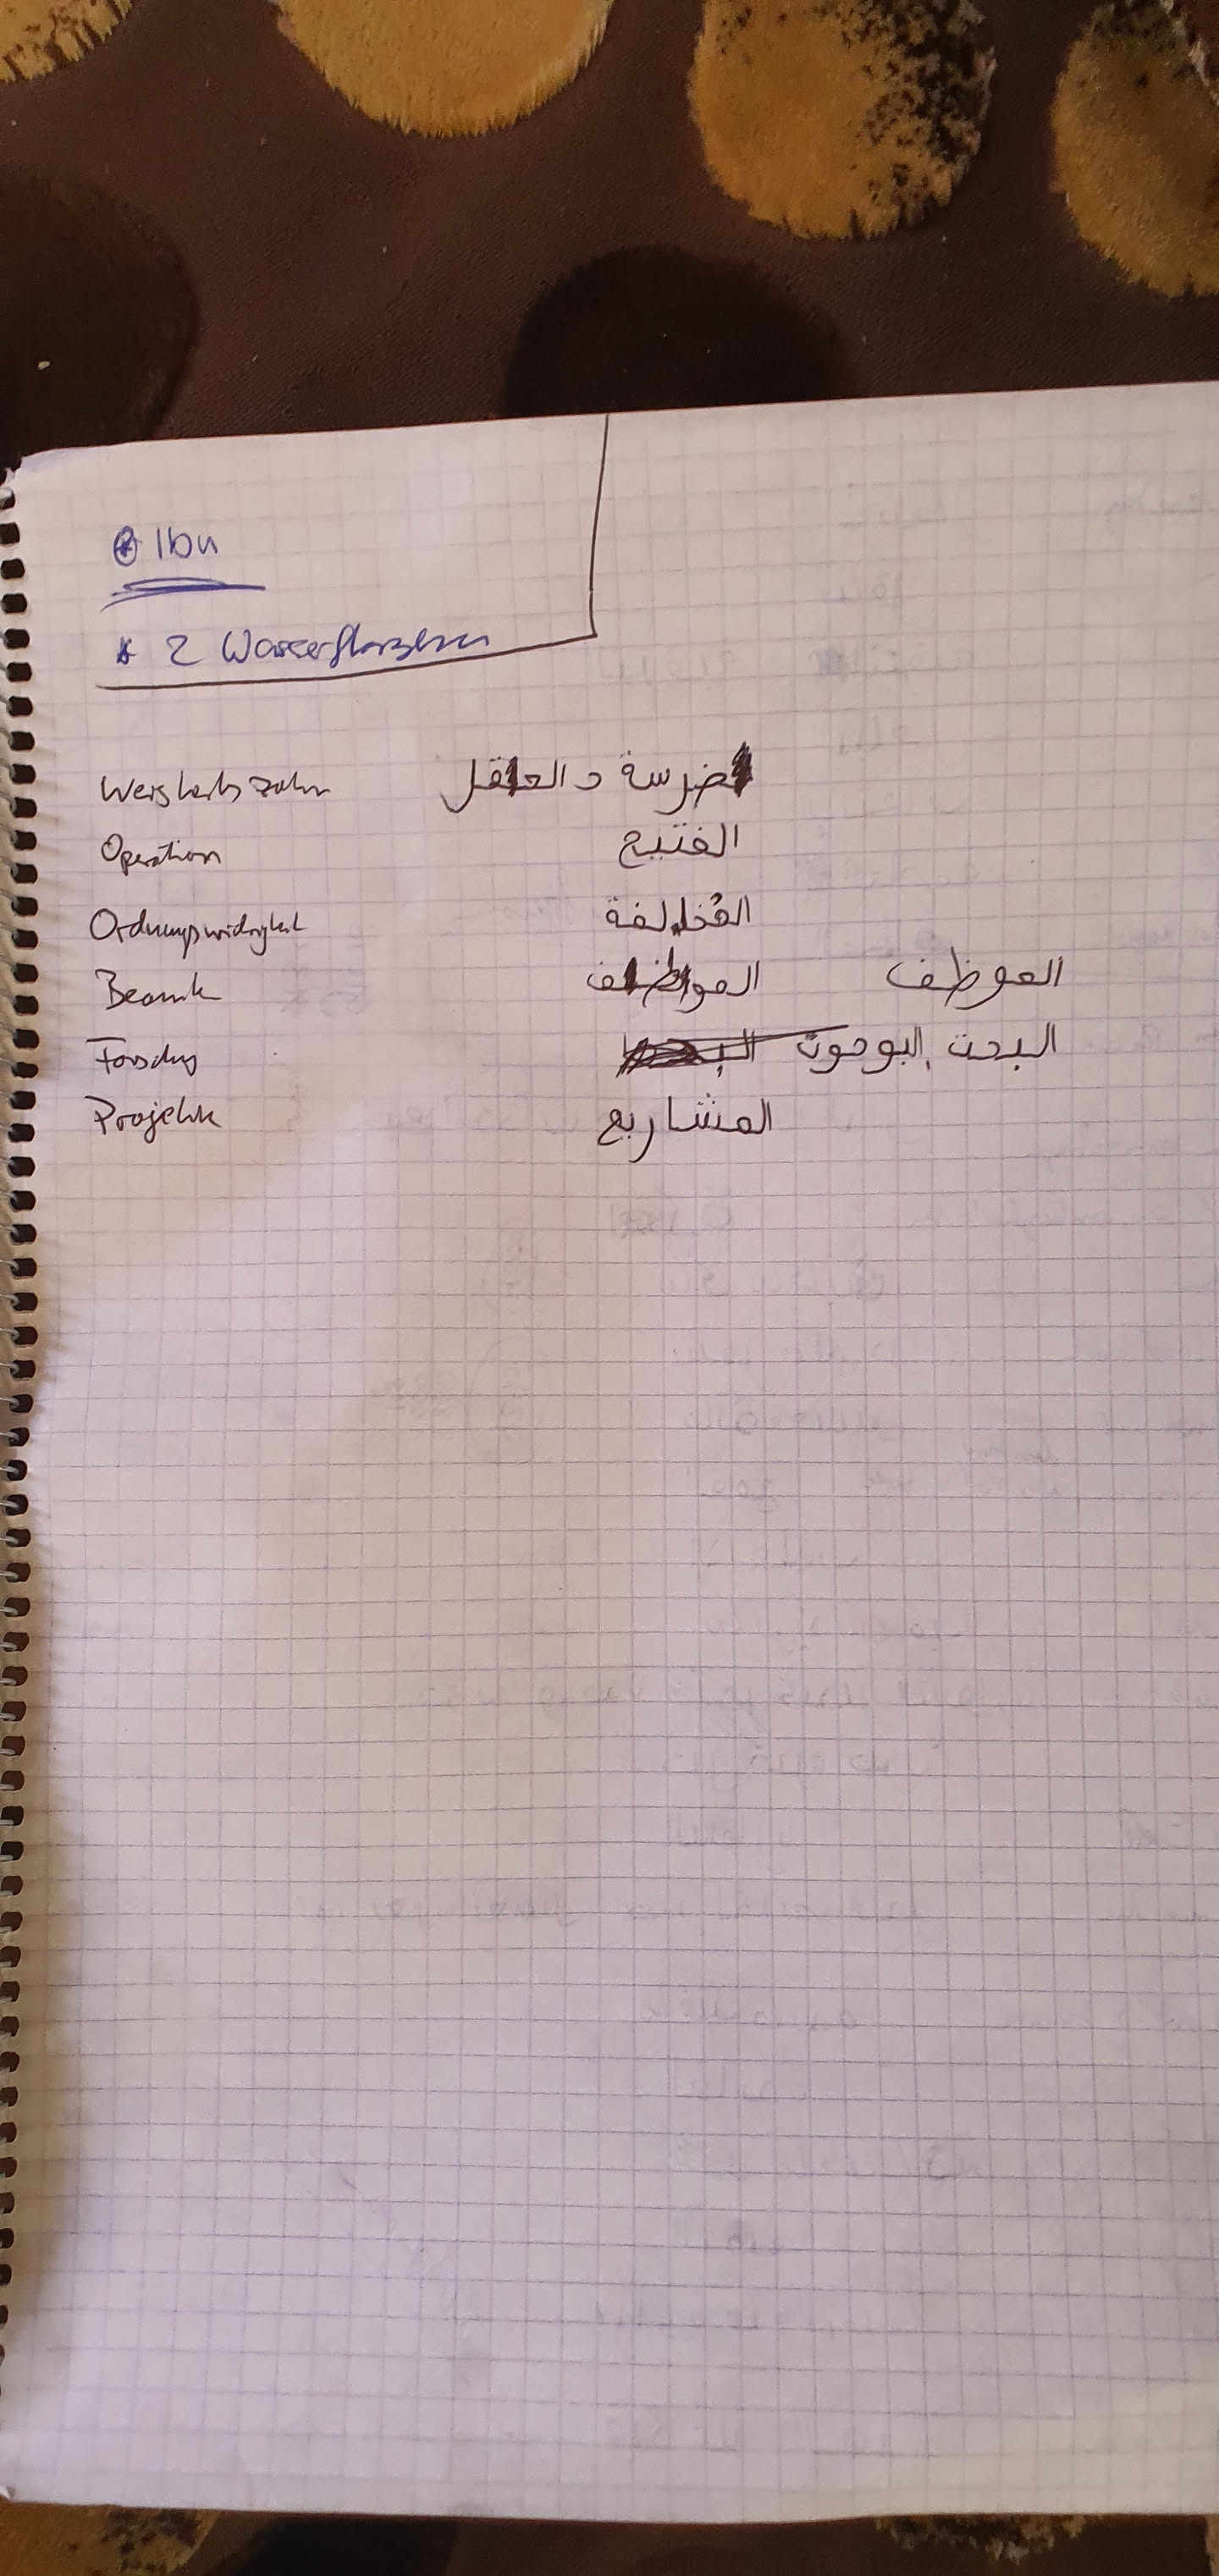 * Ibu
* 2 Wasserflaschen
Weisheitszahn ضرسة د العقل
Operation الفتيح
Ordnungswidrigkeit المخالفة
Beamte الموظف
Forschung البحت البوحوت
Projekte المشاريع